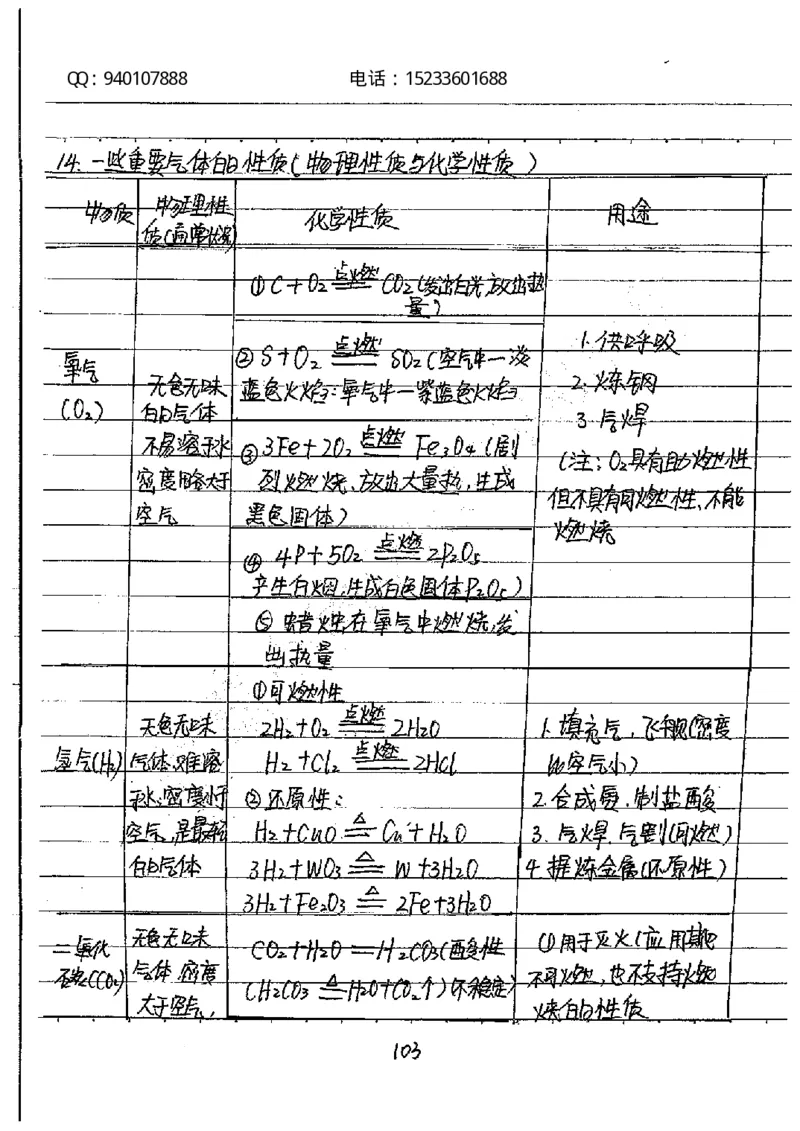 QQ：940107888 电话：15233601688
14. 一些重要气体的性质(物理性质与化学性质)
物质 物理性 化学性质 用途
质(通常状况)
氧气
(O₂)
无色无味
的气体
不易溶于水
密度略大于
空气
①C+O₂ 点燃══ CO₂(发出白光,放出热
量)
②S+O₂ 点燃══ SO₂(空气中—淡
蓝色火焰;氧气中—紫蓝色火焰)
③3Fe+2O₂ 点燃══ Fe₃O₄(剧
烈燃烧、放出大量热,生成
黑色固体)
④ 4P+5O₂ 点燃══ 2P₂O₅
产生白烟,生成白色固体P₂O₅)
⑤ 蜡烛在氧气中燃烧,发
出热量
1.供呼吸
2.炼钢
3.气焊
(注:O₂具有助燃性
但不具有可燃性、不能
燃烧
氢气(H₂)
无色无味
气体,难溶
于水,密度小于
空气,是最轻
的气体
①可燃性
2H₂+O₂ 点燃══ 2H₂O
H₂+Cl₂ 点燃══ 2HCl
②还原性:
H₂+CuO △══ Cu+H₂O
3H₂+WO₃ △══ W+3H₂O
3H₂+Fe₂O₃ △══ 2Fe+3H₂O
1.填充气,飞舰(密度
比空气小)
2.合成氨,制盐酸
3.气焊,气割(可燃)
4.提炼金属(还原性)
二氧化
碳(CO₂)
无色无味
气体,密度
大于空气,
CO₂+H₂O══H₂CO₃(酸性
(H₂CO₃ △══ H₂O+CO₂↑)(不稳定)
①用于灭火(应用其既
不可燃,也不支持燃
烧的性质
103